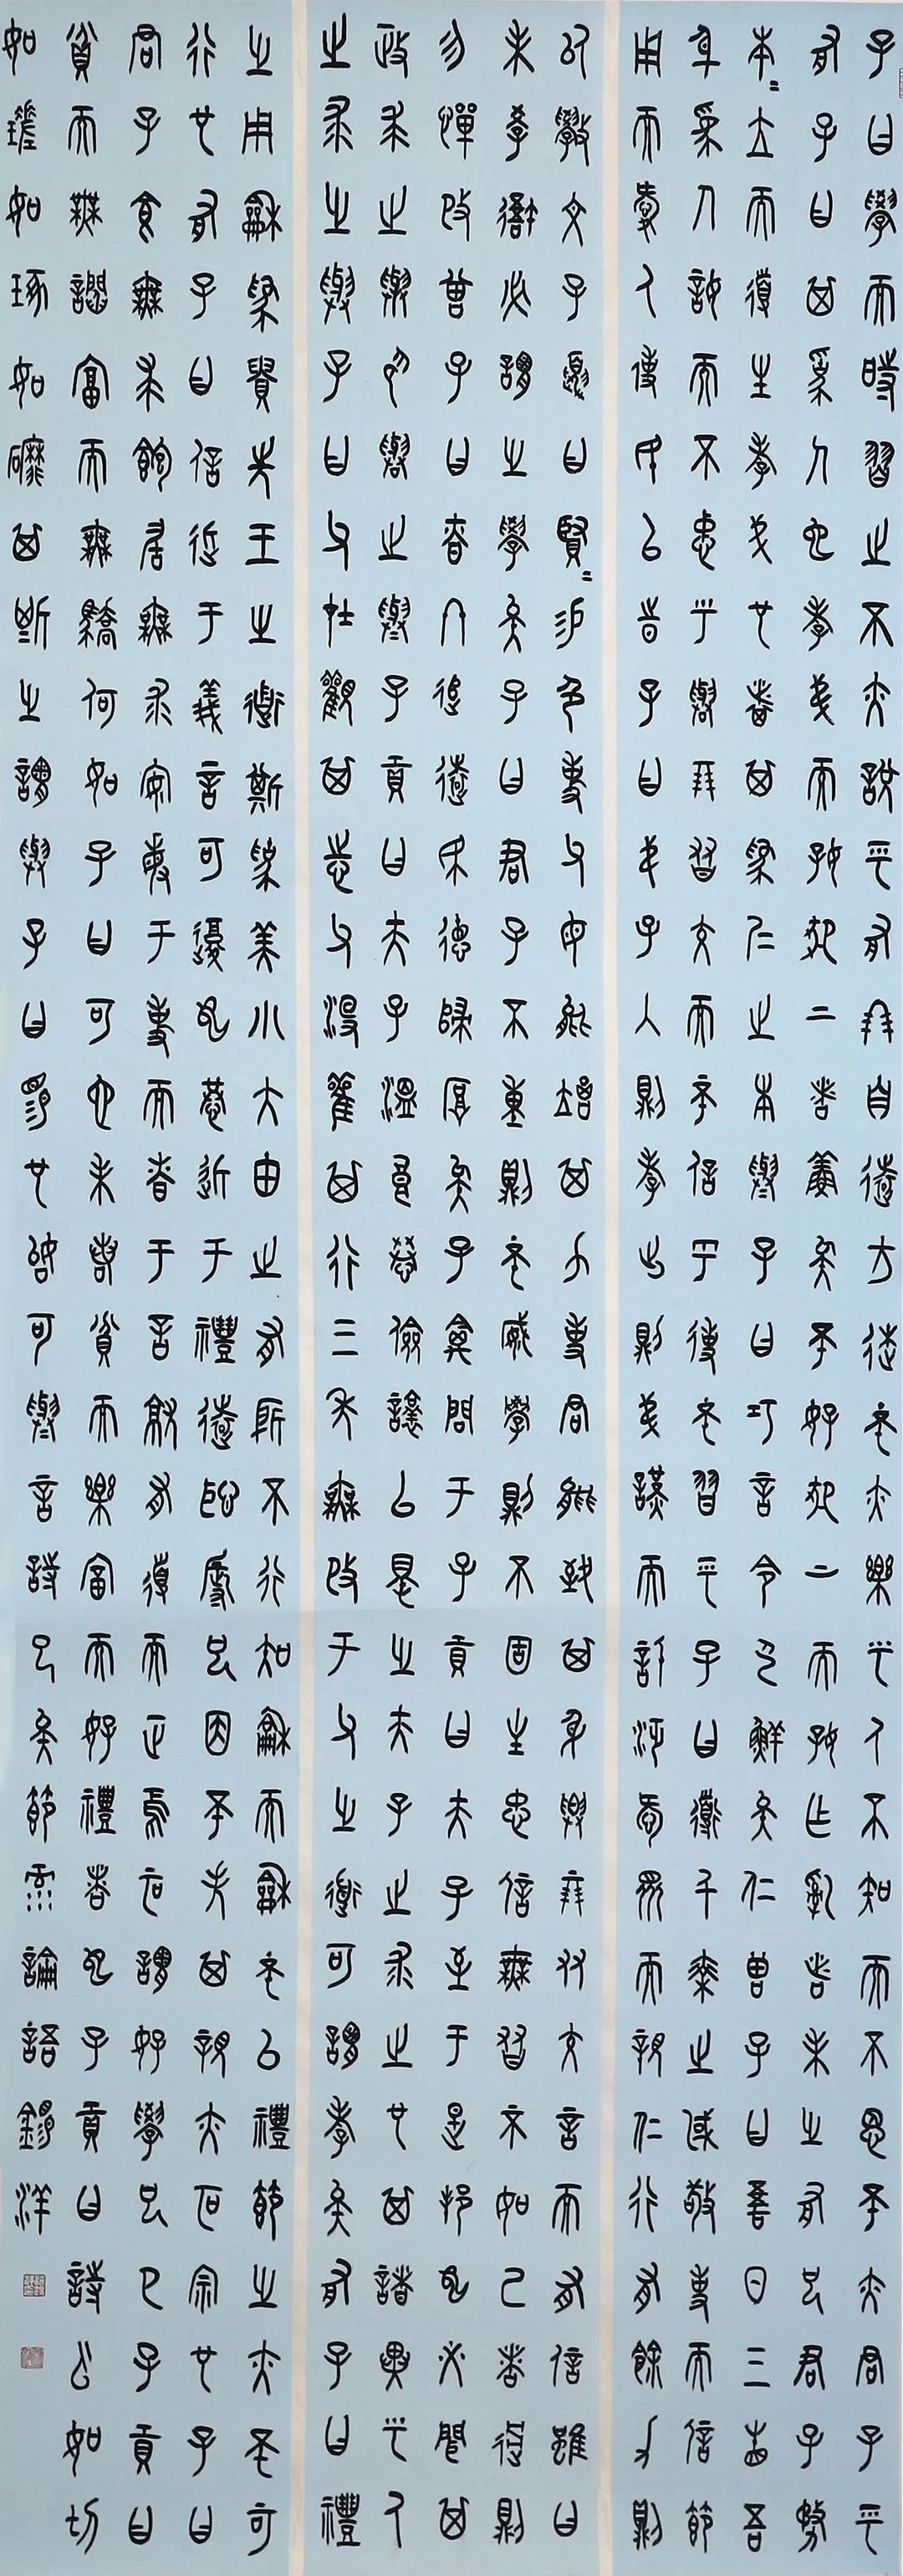 子曰學而時習之不亦說乎有朋自遠方來不亦樂乎人不知而不慍不亦君子乎
有子曰其為人也孝弟而好犯上者鮮矣不好犯上而好作亂者未之有也君子務
本=立而道生孝弟也者其為仁之本與子曰巧言令色鮮矣仁曾子曰吾日三省吾
身為人謀而不忠乎與朋友交而不信乎傳不習乎子曰道千乘之國敬事而信節
用而愛人使民以時子曰弟子入則孝出則弟謹而信汎愛眾而親仁行有餘力則
以學文子夏曰賢=易色事父母能竭其力事君能致其身與朋友交言而有信雖曰
未學吾必謂之學矣子曰君子不重則不威學則不固主忠信無友不如己者過則
勿憚改曾子曰慎終追遠民德歸厚矣子禽問于子貢曰夫子至于是邦也必聞其
政求之與抑與之與子貢曰夫子溫良恭儉讓以得之夫子之求之也其諸異乎人
之求之與子曰父在觀其志父沒觀其行三年無改于父之道可謂孝矣有子曰禮
之用龢為貴先王之道斯為美小大由之有所不行知龢而龢不以禮節之亦不可
行也有子曰信近于義言可復也恭近于禮遠恥辱也因不失其親亦可宗也子曰
君子食無求飽居無求安敏于事而慎于言就有道而正焉可謂好學也已子貢曰
貧而無諂富而無驕何如子曰可也未若貧而樂富而好禮者也子貢曰詩云如切
如磋如琢如磨其斯之謂與子曰賜也始可與言詩已矣節錄論語錫洋